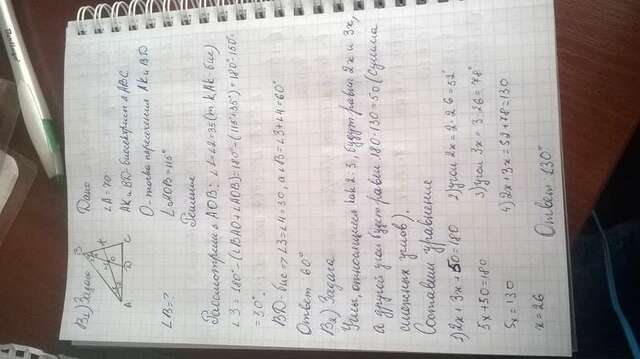 В1) Задача
Дано
∠A = 70
AK и BD - биссектрисы △ABC
O - точка пересечения AK и BD
∠AOB = 115°
∠B = ?
Решение
Рассмотрим △AOB: ∠1=∠2=35 (т.к AK бис)
∠3 = 180° - (∠BAO + ∠AOB) = 180° - (115°+35°) = 180° - 150°
= 30°.
BD - бис => ∠3 = ∠4 = 30, а ∠B = ∠3 + ∠4 = 60°
Ответ 60°
В2) Задача
Углы, относящиеся как 2:3, будут равны 2x и 3x,
а другой угол будет равен 180-130 = 50 (Сумма
смежных углов).
Составим уравнение
1) 2x + 3x + 50 = 180
5x + 50 = 180
5x = 130
x = 26
2) угол 2x = 2·26 = 52°
3) угол 3x = 3·26 = 78°
4) 2x + 3x = 52 + 78 = 130
Ответ 130°
A
B
C
D
K
O